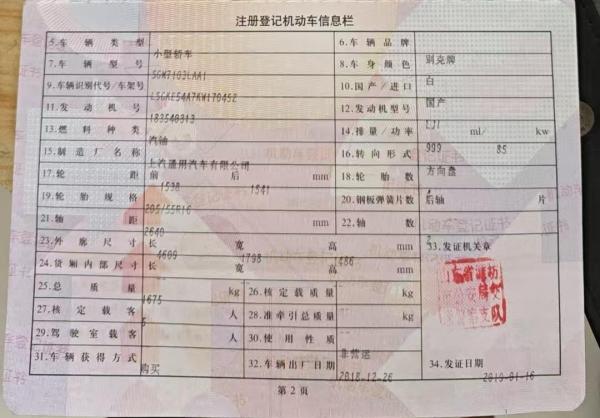 注册登记机动车信息栏
5.车辆类型 小型轿车 6.车辆品牌 别克牌
7.车辆型号 SGM7103LAA1 8.车身颜色 白
9.车辆识别代号/车架号 10.国产/进口 国产
11.发动机号 183540313 12.发动机型号 LJI
13.燃料种类 汽油 14.排量/功率 999 ml/ 85 kw
15.制造厂名称 上汽通用汽车有限公司 16.转向形式 方向盘
17.轮距 前 1538 后 1541 mm 18.轮胎数
19.轮胎规格 205/55R16 20.钢板弹簧片数 后轴 片
21.轴距 2640 mm 22.轴数
23.外廓尺寸 长 4609 宽 1798 高 1486 mm 33.发证机关章
24.货厢内部尺寸 长 宽 高 mm
25.总质量 1675 kg 26.核定载质量 -- kg
27.核定载客 5 人 28.准牵引总质量 -- kg
29.驾驶室载客 -- 人 30.使用性质 非营运
31.车辆获得方式 购买 32.车辆出厂日期 2018-12-26 34.发证日期 2019-01-16
第2页